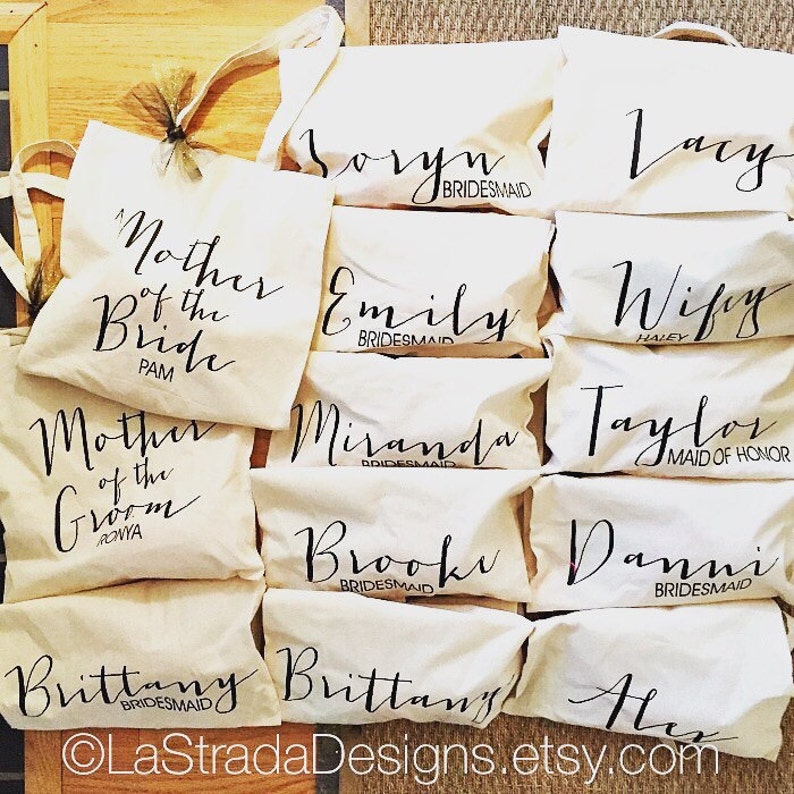 Mother
of the
Bride
PAM
Mother
of the
Groom
RONYA
Brittany
BRIDESMAID
Loryn
BRIDESMAID
Emily
BRIDESMAID
Miranda
BRIDESMAID
Brooke
BRIDESMAID
Brittany
Lacy
Wifey
HALEY
Taylor
MAID OF HONOR
Danni
BRIDESMAID
Alex
©LaStradaDesigns.etsy.com